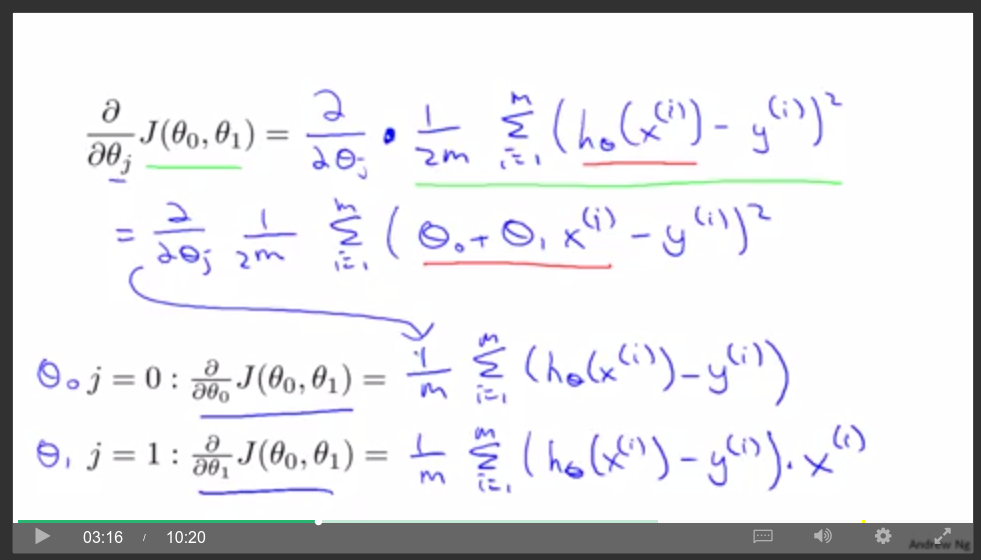 ∂/∂θj J(θ0, θ1) = ∂/∂θj · 1/2m Σ_{i=1}^{m} (hθ(x^(i)) - y^(i))²
= ∂/∂θj 1/2m Σ_{i=1}^{m} (θ0 + θ1 x^(i) - y^(i))²
θ0 j = 0 : ∂/∂θ0 J(θ0, θ1) = 1/m Σ_{i=1}^{m} (hθ(x^(i)) - y^(i))
θ1 j = 1 : ∂/∂θ1 J(θ0, θ1) = 1/m Σ_{i=1}^{m} (hθ(x^(i)) - y^(i)) · x^(i)
03:16 / 10:20
Andrew Ng